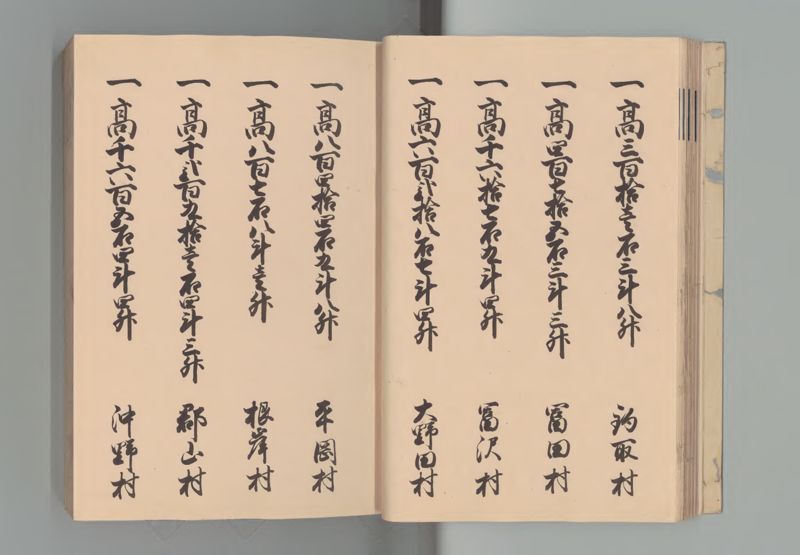 一高三百拾壱石三斗八升 鈎取村
一高四百七拾五石三斗三升 富田村
一高千六拾七石九斗四升 富沢村
一高六百弐拾八石七斗四升 大野田村
一高八百四拾四石九斗八升 平岡村
一高八百七石八斗壱升 根岸村
一高千弐百九拾壱石四斗三升 郡山村
一高千六百五石四斗四升 沖野村